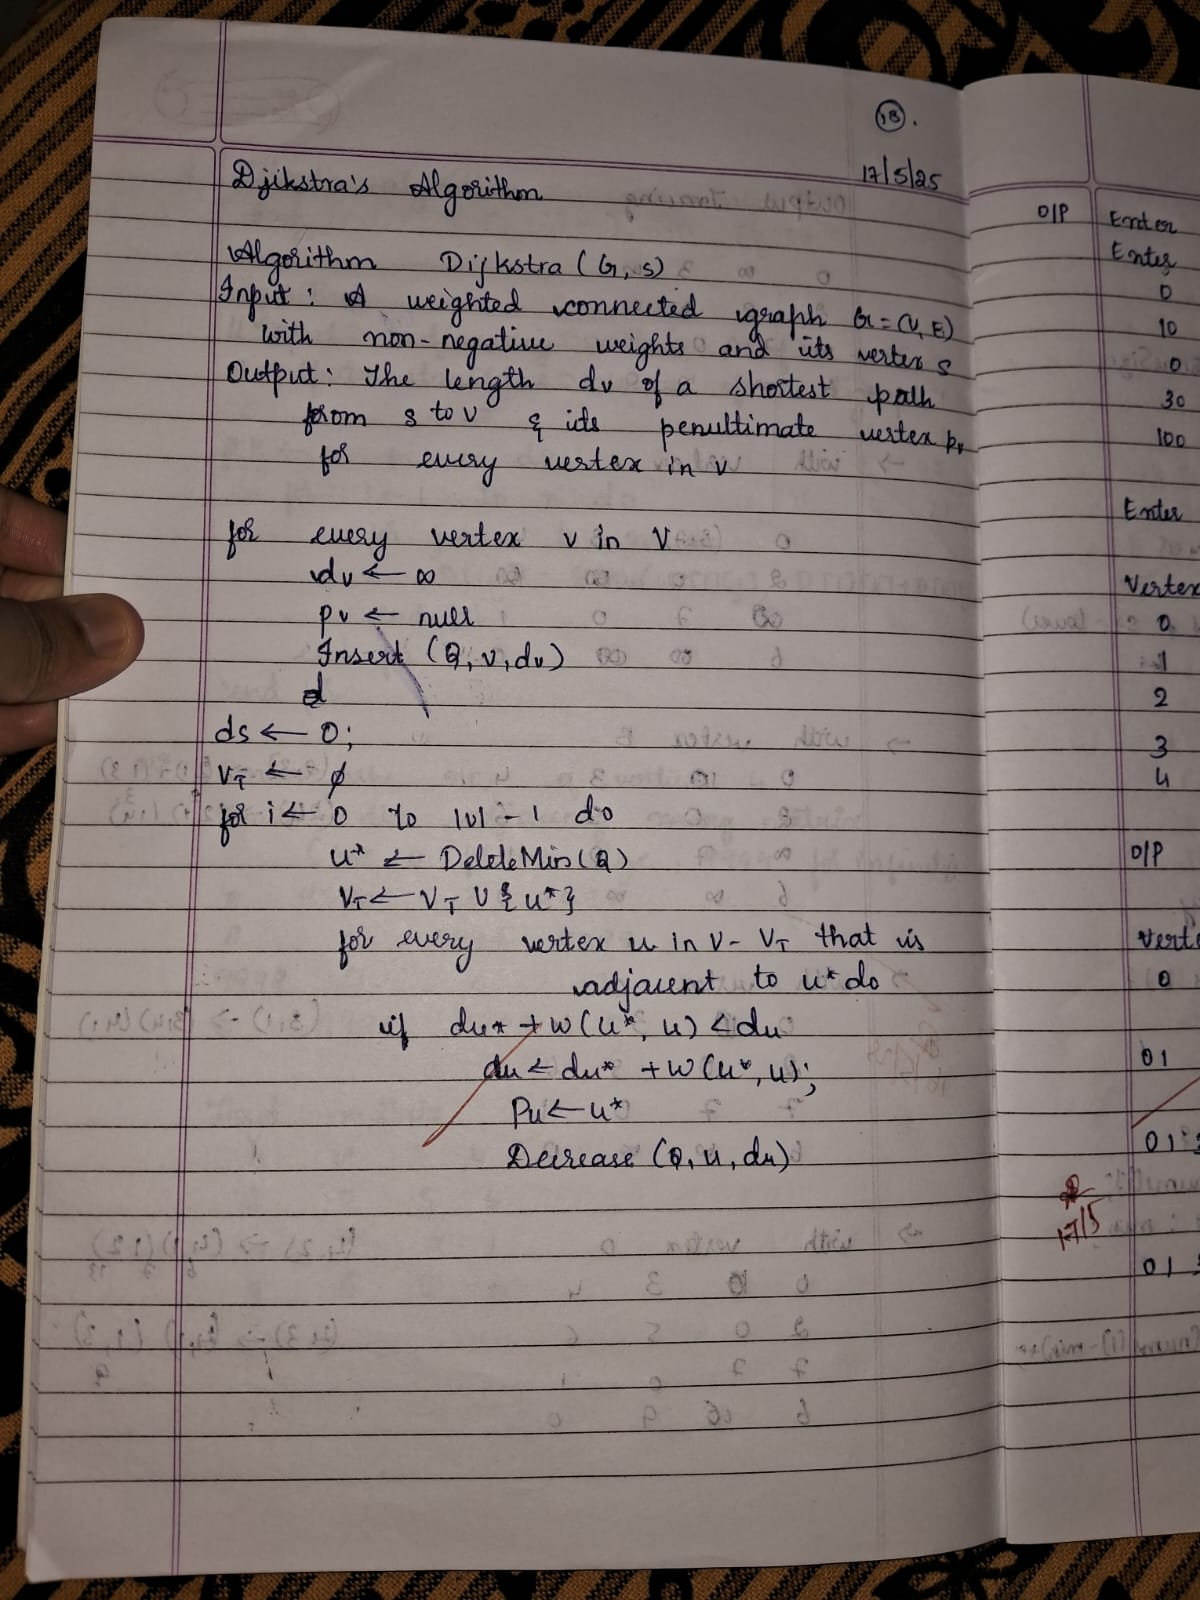 18.
17/5/25
Djikstra's Algorithm
Algorithm Dijkstra (G, s)
Input: A weighted connected graph G = (V, E)
with non-negative weights and its vertex s
Output: The length dv of a shortest path
from s to v & its penultimate vertex pv
for every vertex in v
for every vertex v in V
dv ← ∞
pv ← null
Insert (Q, v, dv)
ds ← 0;
VT ← ∅
for i ← 0 to |V| - 1 do
u* ← DeleteMin(Q)
VT ← VT U {u*}
for every vertex u in V - VT that is
adjacent to u* do
if du* + w(u*, u) < du
du ← du* + w(u*, u);
Pu ← u*
Decrease (Q, u, du)
17/5
O/P Enter
Enter
0
10
0
30
100
Enter
Vertex
0
1
2
3
4
O/P
Verte
0
01
01
01